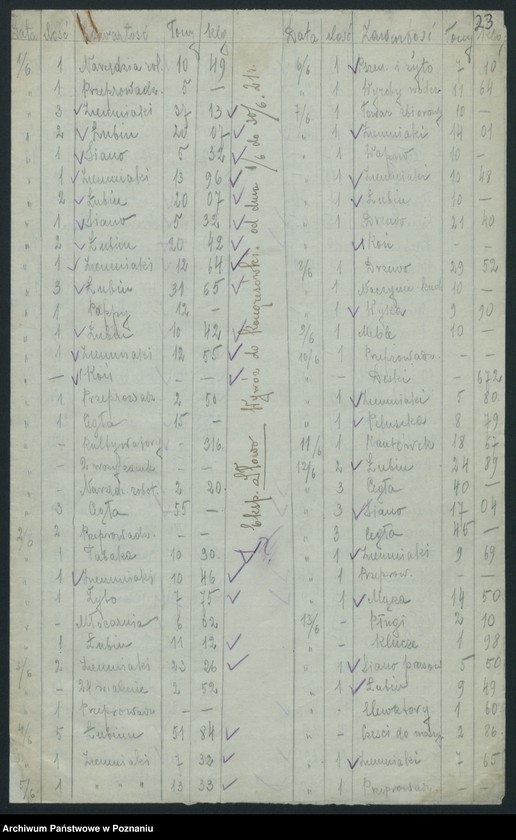 23
Data ilość Zawartość Tony klg
1/6 1 Narzędzia rol. 10 49
" 1 Przeprowadz. 5 —
" 3 Ziemniaki 37 13
" 2 Łubin 20 07
" 1 Siano 5 32
" 1 Ziemniaki 13 96
" 2 Łubin 20 07
" 1 Siano 5 32
" 2 Łubin 20 42
" 1 Ziemniaki 12 64
" 3 Łubin 31 65
" 1 12 —
" 1 Łubin 10 42
" 1 Ziemniaki 12 55
" — Koń — —
" 1 Przeprowadz 2 50
" 1 Cegła 15 —
" — Kultywatory - 316
" — — —
" — Narzędz. robot. 2 20
" 3 Cegła 55 —
2/6 2 Przeprowadz. — —
" 1 10 90
" 1 Ziemniaki 10 46
" 1 Żyto 7 75
" — Młocarnia 6 62
" 1 Łubin 11 12
3/6 2 Ziemniaki 23 26
" — 24 2 52
" 1 Przeprowadz — —
4/6 5 Łubin 51 84
" 1 Ziemniaki 7 33
5/6 1 " " " 13 33
Eksp. Wywóz do Kongresówki. od dnia 1/6 do 30/6. 21r.
Data ilość Zawartość Tony klg.
6/6 1 Pszen. i żyto 7 10
" 1 Wyroby 11 64
7/6 1 Towar zbiorowy 10 —
" 1 Ziemniaki 14 01
" 1 Wapno 10 —
" 1 Ziemniaki 13 48
" 1 Łubin 10 —
" 1 Drzewo 21 40
" Koń — —
8/6 1 Drzewo 29 52
" 1 10 —
" 1 Wyka 9 90
9/6 1 Meble 10 —
10/6 1 Przeprowadz. — —
" — Deski — 672
" 1 Ziemniaki 5 80
" 1 Peluszka 8 79
11/6 1 18 57
12/6 2 Łubin 24 89
" 3 Cegła 40 —
" 3 Siano 17 04
" 3 cegła 45 —
" 1 Ziemniaki 9 69
" 1 Przeprow. — —
" 1 Mąka 14 50
13/6 — Pługi 2 10
" — 1 98
" 1 Siano 5 50
" 1 Łubin 9 49
" Elewatory 1 60
" — Części do masz. 2 86
" 1 Ziemniaki 7 65
" 1 Przeprowadz. — —
Archiwum Państwowe w Poznaniu